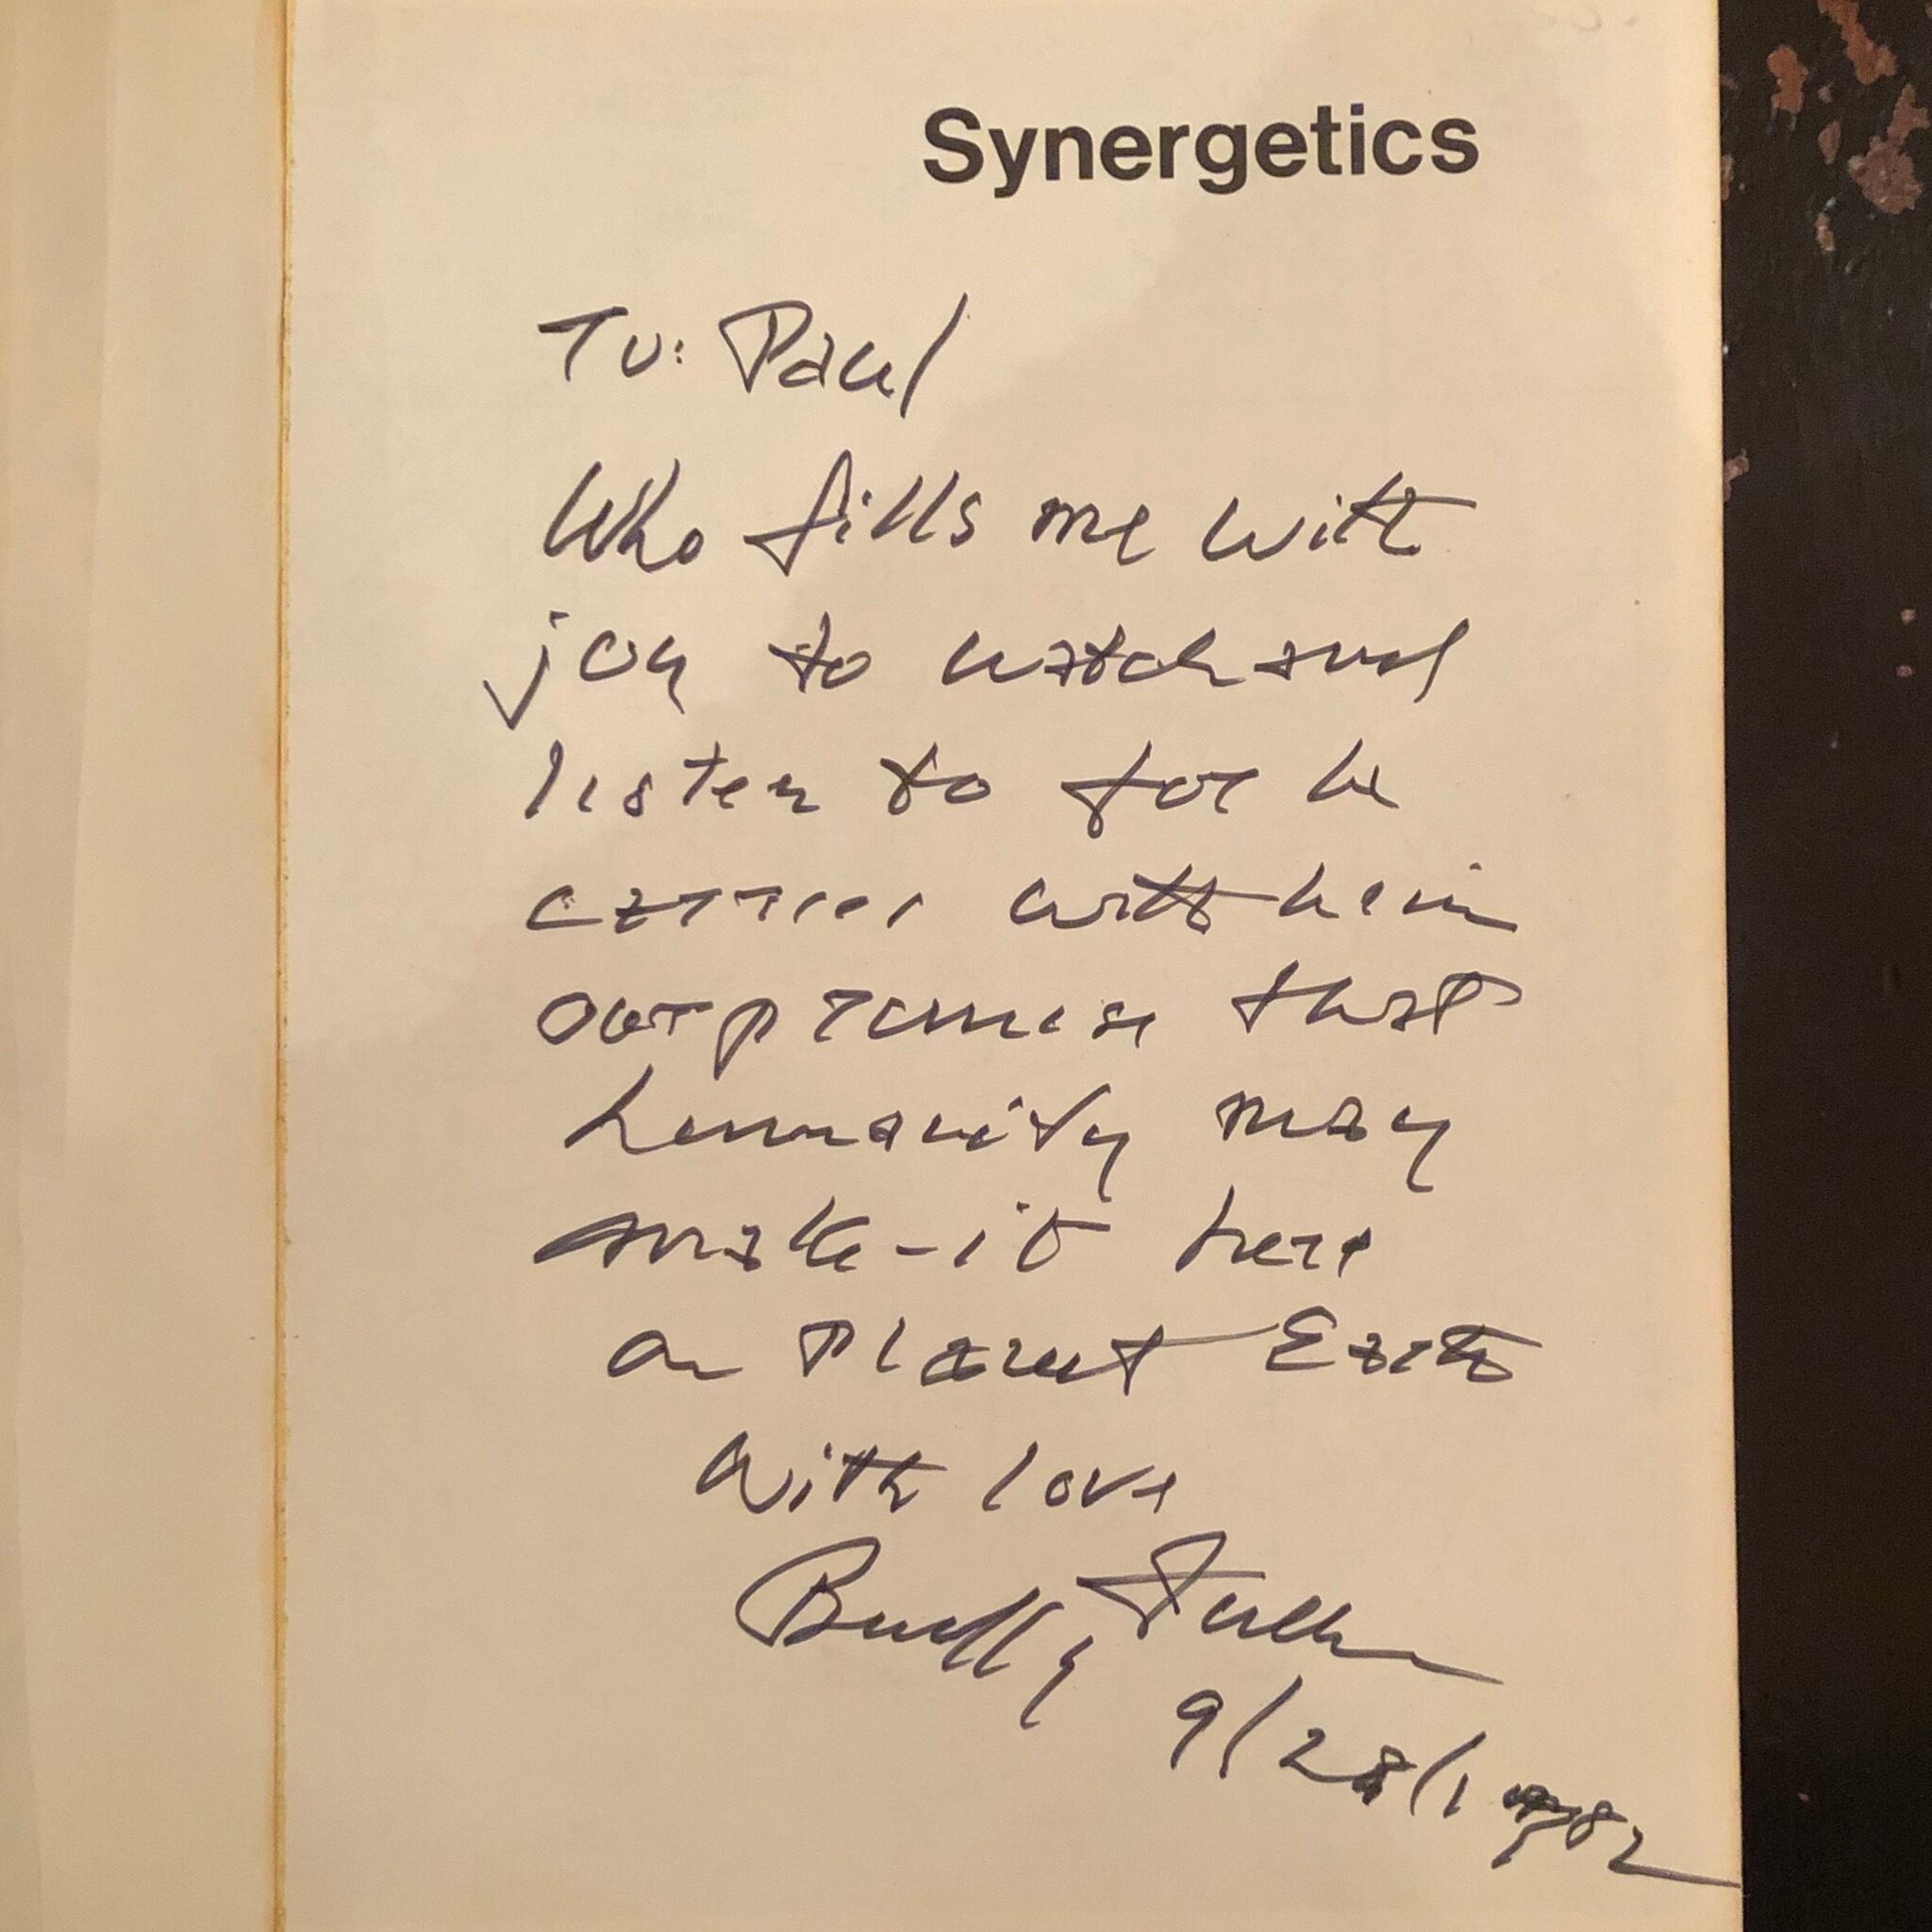 Synergetics
To: Paul
Who fills me with
joy to watch and
listen to for he
carries with him
our promise that
humanity may
make-it here
on Planet Earth
With love
Bucky Fuller
9/28/1982